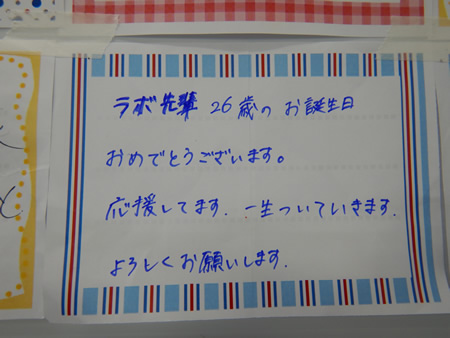 ラボ先輩 26歳の お誕生日
おめでとうございます。
応援してます. 一生ついていきます.
よろしくお願いします.